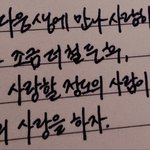 다음 생에 만나
조금 더 철 든
사랑할 정도의 사랑이
사랑을 하자.